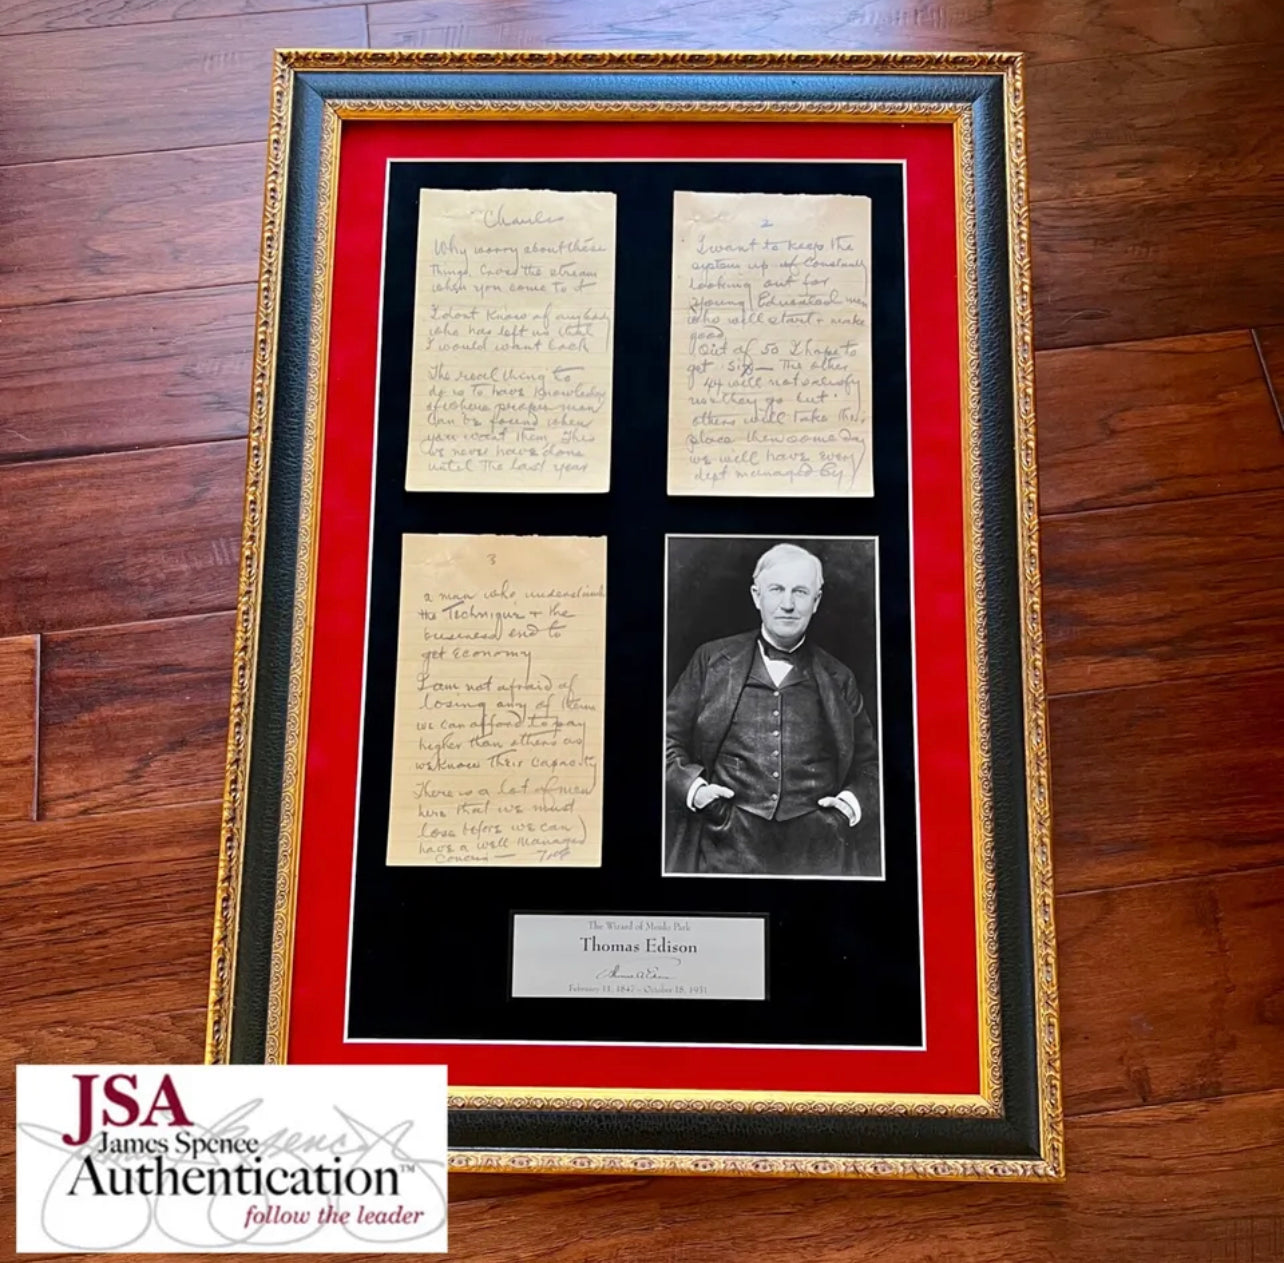 Charles
Why worry about these
things. Cross the stream
when you come to it
I dont know of anybody
who has left us that
I would want back
The real thing to
do is to have Knowledge
of where proper men
Can be found when
you want them This
we never have done
until The last year
2
I want to keep the
system up of Constantly
Looking out for
young Educated men
who will start + make
good
Out of 50 I hope to
get six — The other
44 will not satisfy
us they go but
others will take their
place then some day
we will have every
dept managed by
3
a man who understands
the Technique + the
business end to
get economy
I am not afraid of
losing any of them
we can afford to pay
higher than others as
we know Their capacity
There is a lot of men
here that we must
lose before we can
have a well managed
Concern —
The Wizard of Menlo Park
Thomas Edison
Thomas A Edison
February 11, 1847 – October 18, 1931
JSA
James Spence
Authentication™
follow the leader